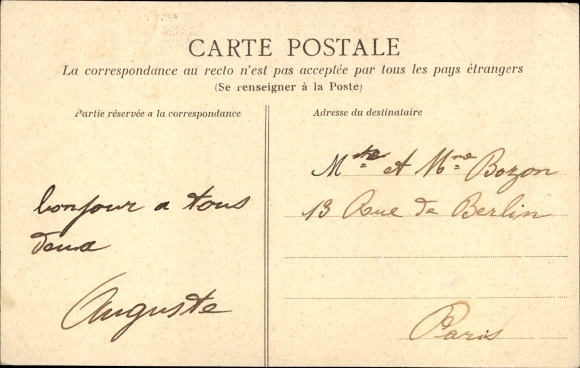 CARTE POSTALE
La correspondance au recto n'est pas acceptée par tous les pays étrangers
(Se renseigner à la Poste)
Partie réservée a la correspondance
bonjour a tous
deux
Auguste
Adresse du destinataire
et Mme Bozon
13 Rue de Berlin
Paris